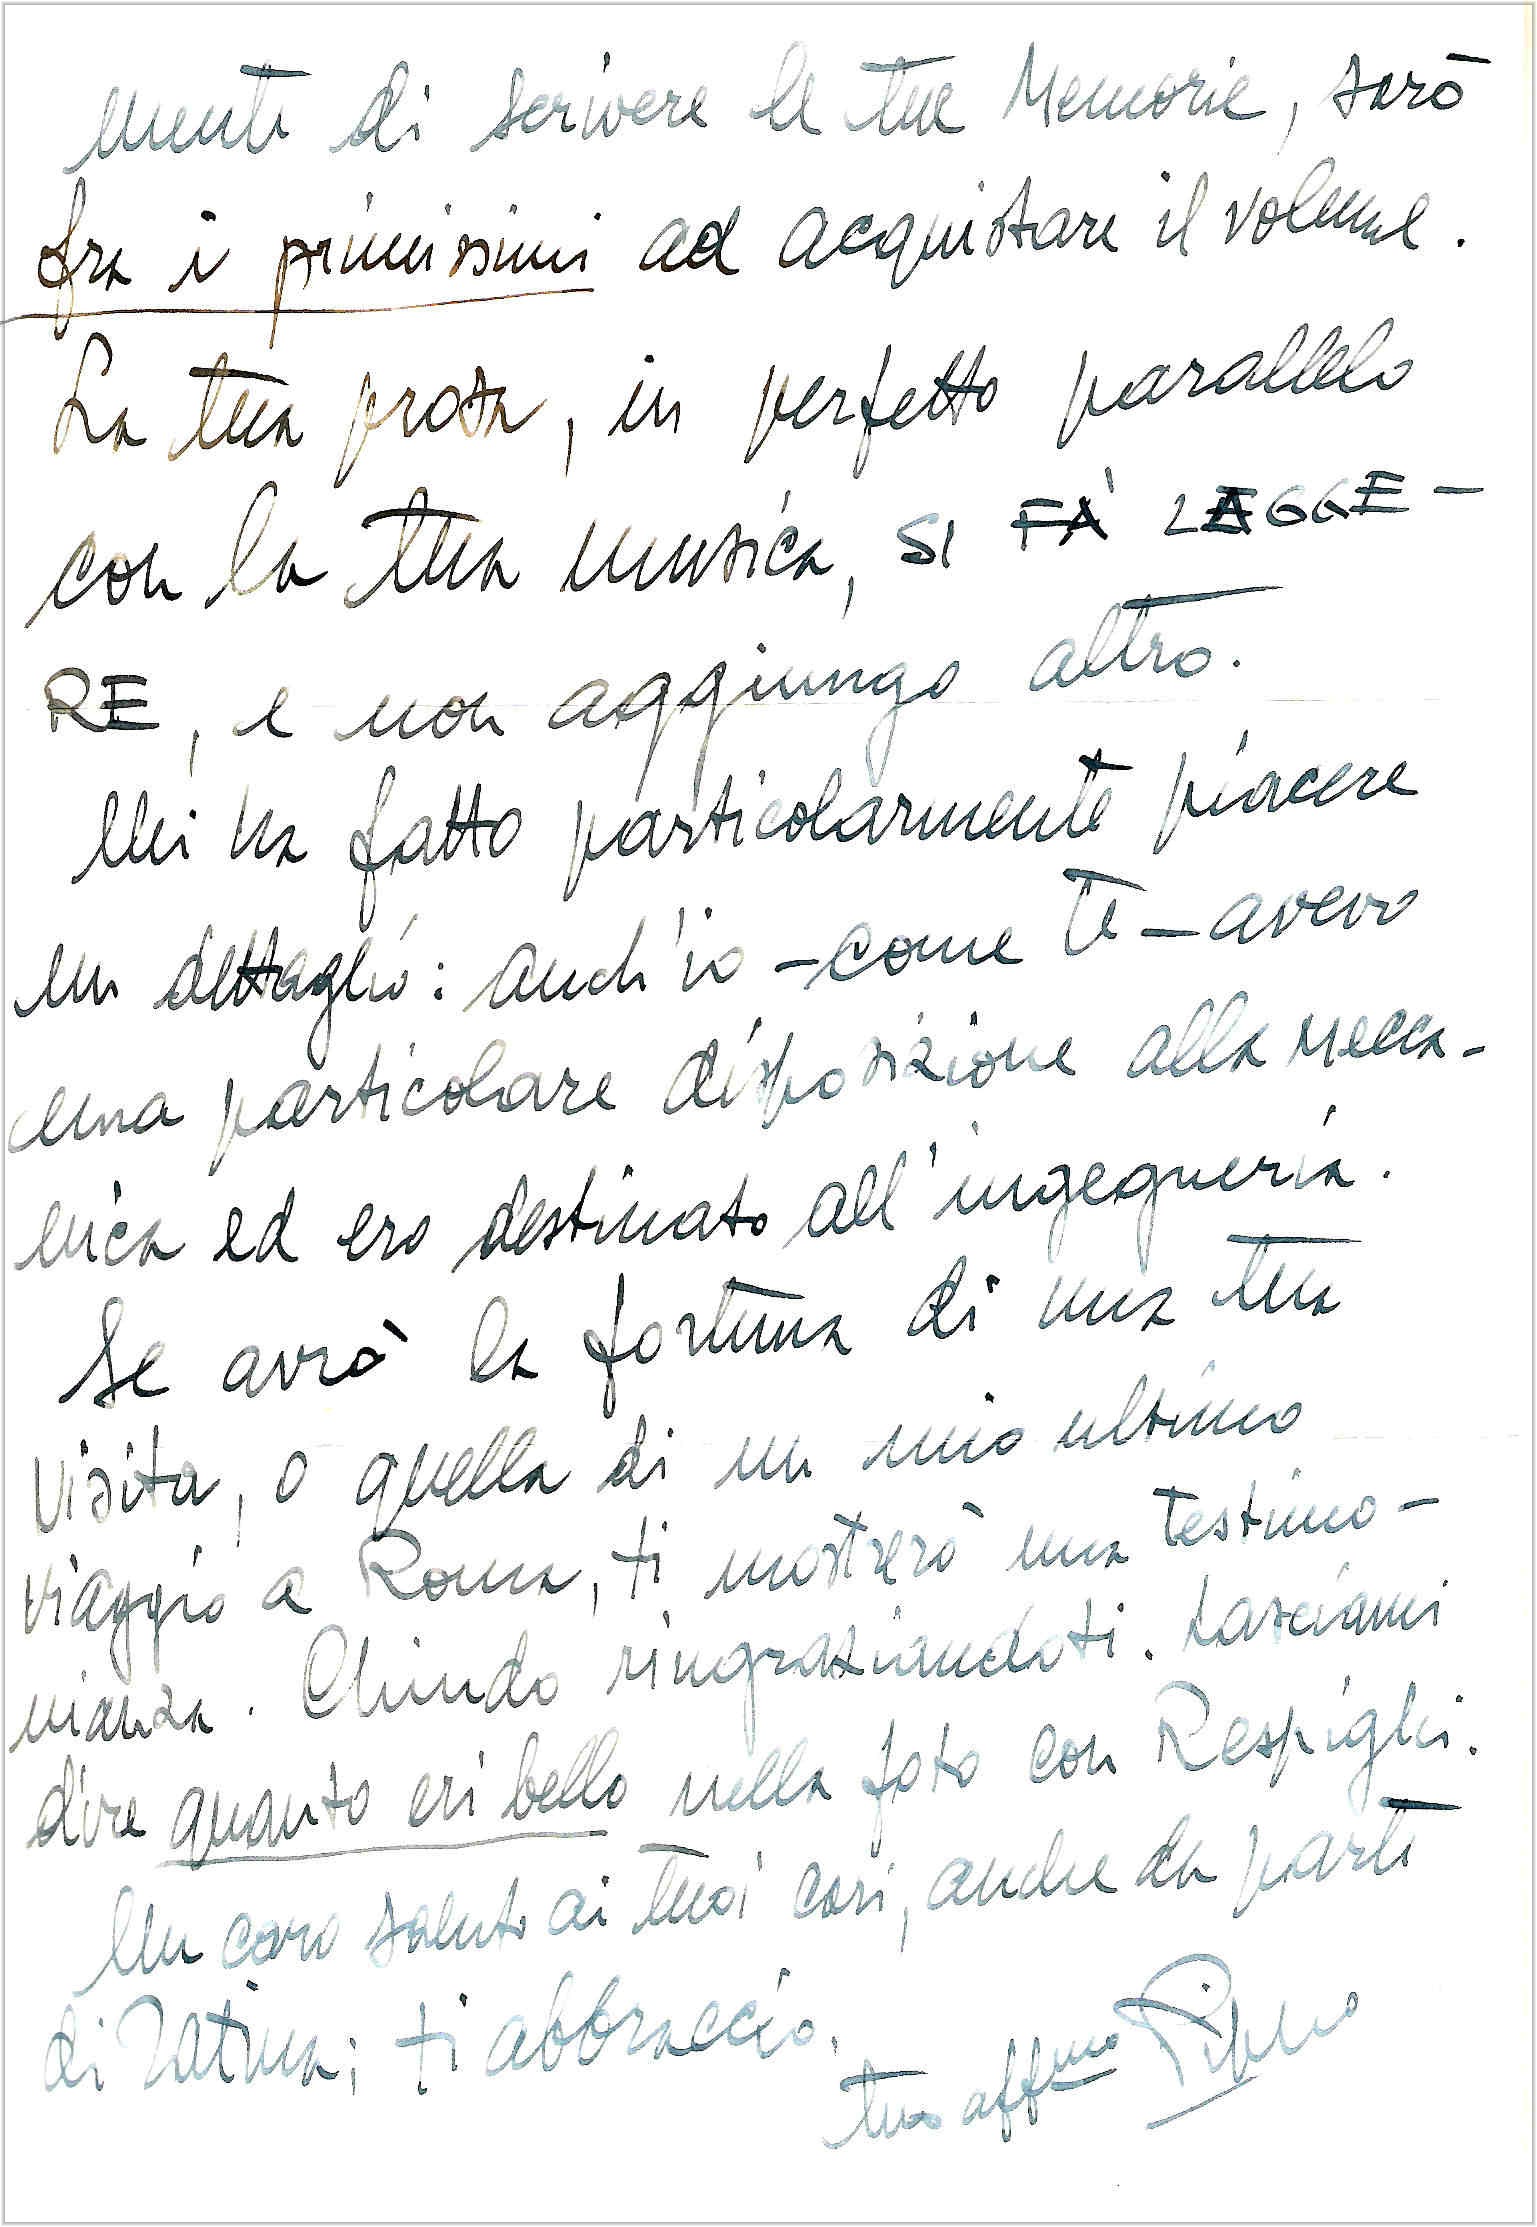 mente di scrivere le tue Memorie, sarò
fra i primissimi ad acquistare il volume.
La tua prosa, in perfetto parallelo
con la tua musica, SI FA' LEGGE-
RE, e non aggiungo altro.
Mi ha fatto particolarmente piacere
un dettaglio: anch'io - come te - avevo
una particolare disposizione alla mecca-
nica ed ero destinato all'ingegneria.
Se avrò la fortuna di una tua
visita, o quella di un mio ultimo
viaggio a Roma, ti mostrerò una testimo-
nianza. Chiudo ringraziandoti. Lasciami
dire quanto eri bello nella foto con Respighi.
Un caro saluto ai tuoi cari, anche da parte
di Tatina; ti abbraccio.
tuo affmo